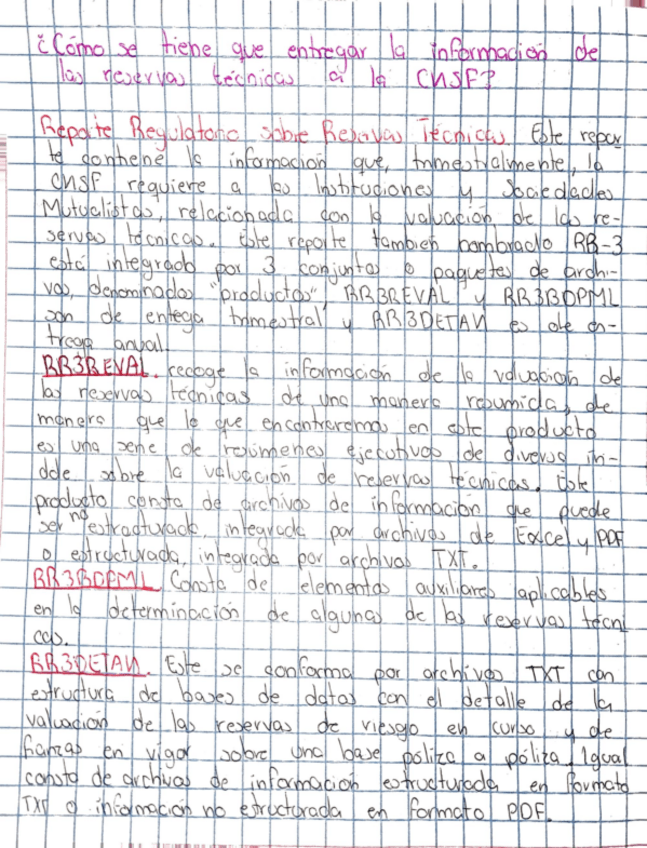 ¿Cómo se tiene que entregar la información de
las reservas técnicas a la CNSF?
Reporte Regulatorio sobre Reservas Técnicas. Este repor
te contiene la información que, trimestralmente, la
CNSF requiere a las Instituciones y Sociedades
Mutualistas, relacionada con la valuación de las re-
servas técnicas. Este reporte también nombrado RR-3
está integrado por 3 conjuntos o paquetes de archi-
vos, denominados "productos", RR3REVAL y RR3BDPML
son de entega trimestral y RR3DETAN es de en-
trega anual.
RR3REVAL. recoge la información de la valuación de
las reservas técnicas de una manera resumida, de
manera que lo que encontraremos en este producto
es una serie de resúmenes ejecutivos de diversa ín-
dole sobre la valuación de reservas técnicas. Este
producto consta de archivos de información que puede
ser no estructurada, integrada por archivos de Excel y PDF
o estructurada, integrada por archivos TXT.
RR3BDPML Consta de elementos auxiliares aplicables
en la determinación de algunas de las reservas técni
cas.
RR3DETAN. Este se conforma por archivos TXT con
estructura de bases de datos con el detalle de la
valuación de las reservas de riesgo en curso y de
fianzas en vigor sobre una base póliza a póliza. Igual
consta de archivos de información estructurada en formato
TXT o información no estructurada en formato PDF.